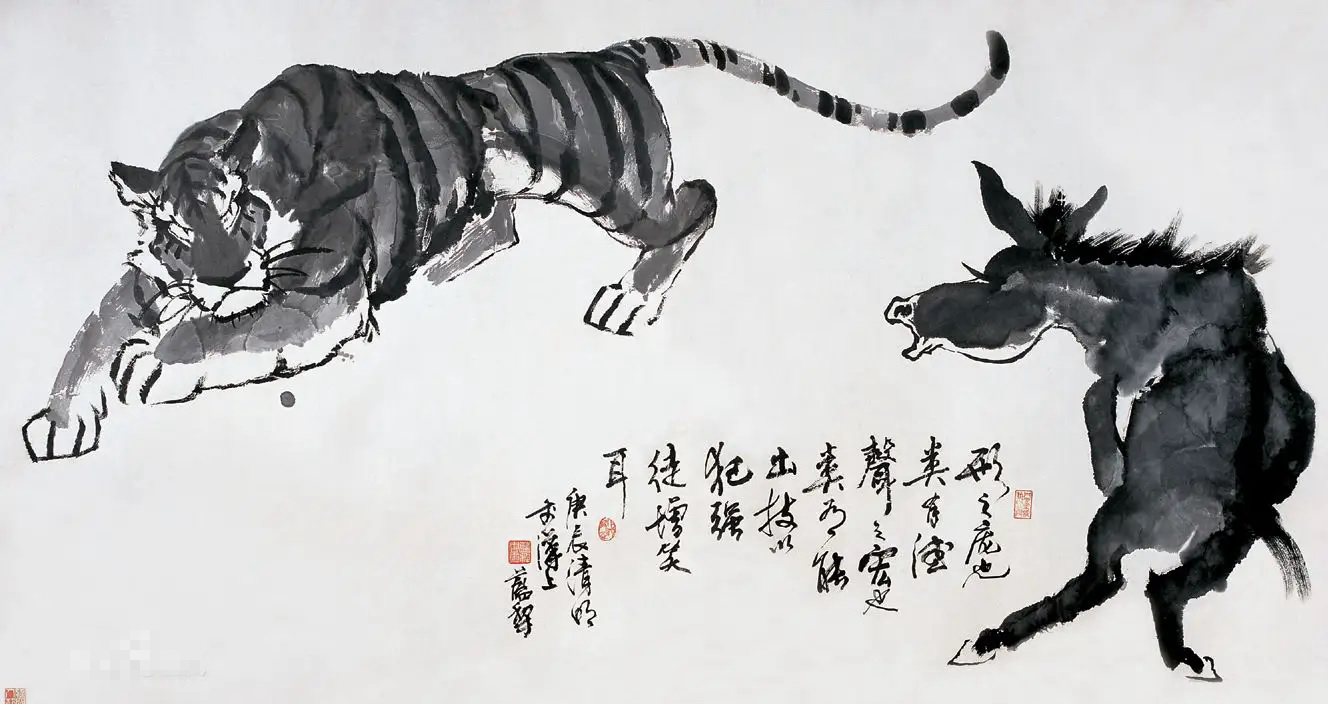 形之庞也
类有德
聲之宏也
类有能
出技以
犯强
徒增笑
耳
庚辰清明
於萍上